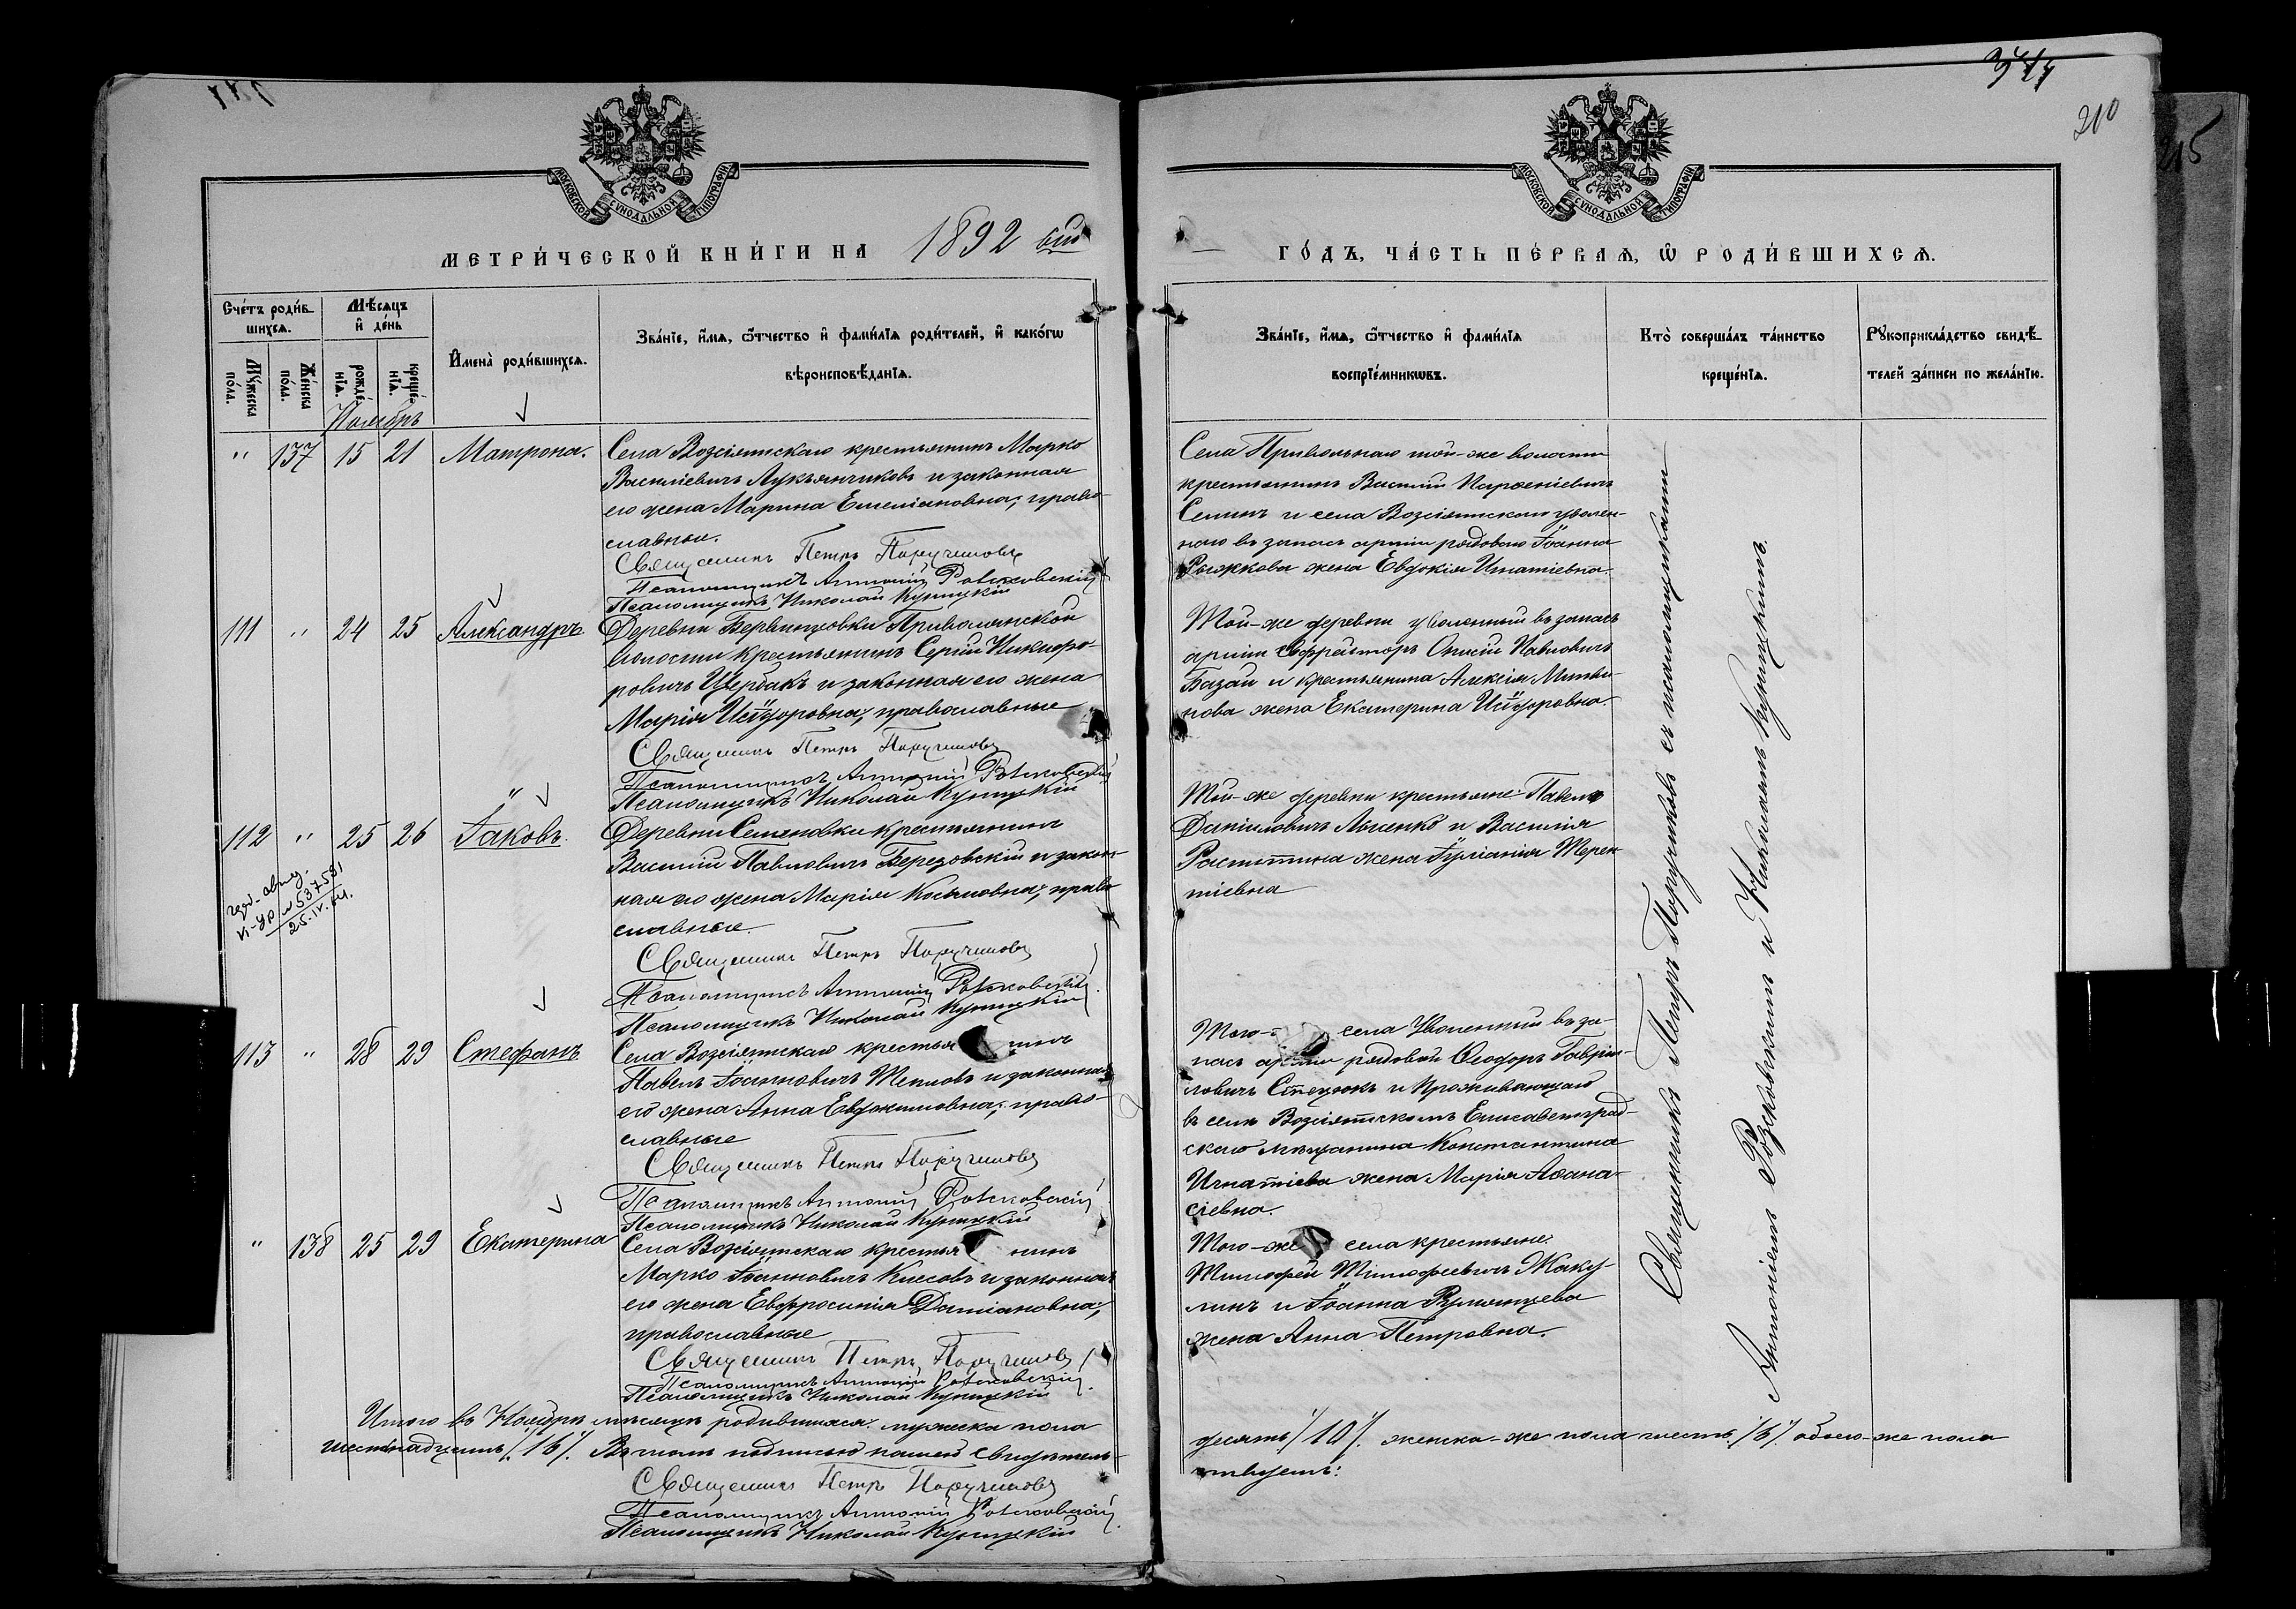 344
210
215
МОСКОВСКОЙ СѴНОДАЛЬНОЙ ТИПОГРАФІИ
МОСКОВСКОЙ СѴНОДАЛЬНОЙ ТИПОГРАФІИ
МЕТРИ́ЧЕСКОЙ КНИ́ГИ НА 1892 ый
ГО́ДЪ, ЧА́СТЬ ПЕ́РВАѦ, Ѿ РОДИ́ВШИХСѦ.
Сче́тъ роди́в-
шихсѧ.
Мѣ́сѧцъ
и҆ де́нь
Мꙋ́жеска по́ла.
Же́нска по́ла.
рожде́нїѧ.
креще́нїѧ.
И҆мена̀ роди́вшихсѧ.
Зва́нїе, и҆́мѧ, ѻ҆́тчество и҆ фами́лїѧ роди́телей, и҆ како́гѡ
вѣроисповѣ́данїѧ.
Зва́нїе, и҆́мѧ, ѻ҆́тчество и҆ фами́лїѧ
воспрїе́мникѡвъ.
Кто̀ соверша́лъ та́инство
креще́нїѧ.
Рꙋкоприкла́дство свидѣ́-
телей за́писи по жела́нїю.
Ноябрь
" 137 15 21 Матрона.
Села Возсіятскаго крестьянинъ Марко
Василіевичъ Лукьянчиковъ и законная
его жена Марина Емеліановна, право-
славные.
Священникъ Петръ Поручиковъ
Псаломщикъ Антоній Розсковскій
Псаломщикъ Николай Куницкій
Села Привольнаго той-же волости
крестьянинъ Василій Парѳеніевичъ
Семинъ и села Возсіятскаго уволен-
наго въ запасъ арміи рядоваго Іоанна
Рыжкова жена Евдокія Игнатіевна.
111 " 24 25 Александръ
Деревни Привольнской
волости крестьянинъ Сергій Никифо-
ровичъ Щербакъ и законная его жена
Марія Исидоровна, православные
Священникъ Петръ Поручиковъ
Псаломщикъ Антоній Розсковскій
Псаломщикъ Николай Куницкій
Той-же деревни уволенный въ запасъ
арміи ефрейторъ Павловичъ
Базай и крестьянина Алексія
жена Екатерина Исидоровна.
112 " 25 26 Іаковъ.
Деревни Семеновки крестьянинъ
Василій Павловичъ Березовскій и закон-
ная его жена Марія Косьмовна, право-
славные.
Священникъ Петръ Поручиковъ
Псаломщикъ Антоній Розсковскій
Псаломщикъ Николай Куницкій
VI-УР № 537581
25.IV.
Той-же деревни крестьяне: Павелъ
Даніиловичъ Лысенко и Василія
жена Іуліанія Терен-
тіевна
113 " 28 29 Стефанъ
Села Возсіятскаго крестьянинъ
Павелъ Іоанновичъ Тепловъ и законная
его жена Анна Евдокимовна, право-
славные
Священникъ Петръ Поручиковъ
Псаломщикъ Антоній Розсковскій
Псаломщикъ Николай Куницкій
Того- села Уволенный въ за-
пасъ арміи рядовой Ѳеодоръ Гавріи-
ловичъ Стецюкъ и проживающаго
въ селѣ Возсіятскомъ Елисаветград-
скаго мѣщанина Константина
Игнатіева жена Марія Аѳана-
сіевна.
" 138 25 29 Екатерина
Села Возсіятскаго крестьянинъ
Марко Іоанновичъ Киссовъ и законная
его жена Евфросинія Даміановна,
православные
Священникъ Петръ Поручиковъ
Псаломщикъ Антоній Розсковскій
Псаломщикъ Николай Куницкій
Того-же села крестьяне:
Тимофей Тимофеевичъ Жаку-
линъ и Іоанна Румянцева
жена Анна Петровна.
Священникъ Петръ Поручиковъ съ псаломщиками
Антоніемъ Розсковскимъ и Николаемъ Куницкимъ.
Итого въ Ноябрѣ мѣсяцѣ родившихся: мужеска пола
десять /10/. женска-же пола шесть /6/. обоего-же пола
шестнадцать /16/. Въ томъ подписью нашею свидѣтель-
ствуемъ:
Священникъ Петръ Поручиковъ
Псаломщикъ Антоній Розсковскій
Псаломщикъ Николай Куницкій